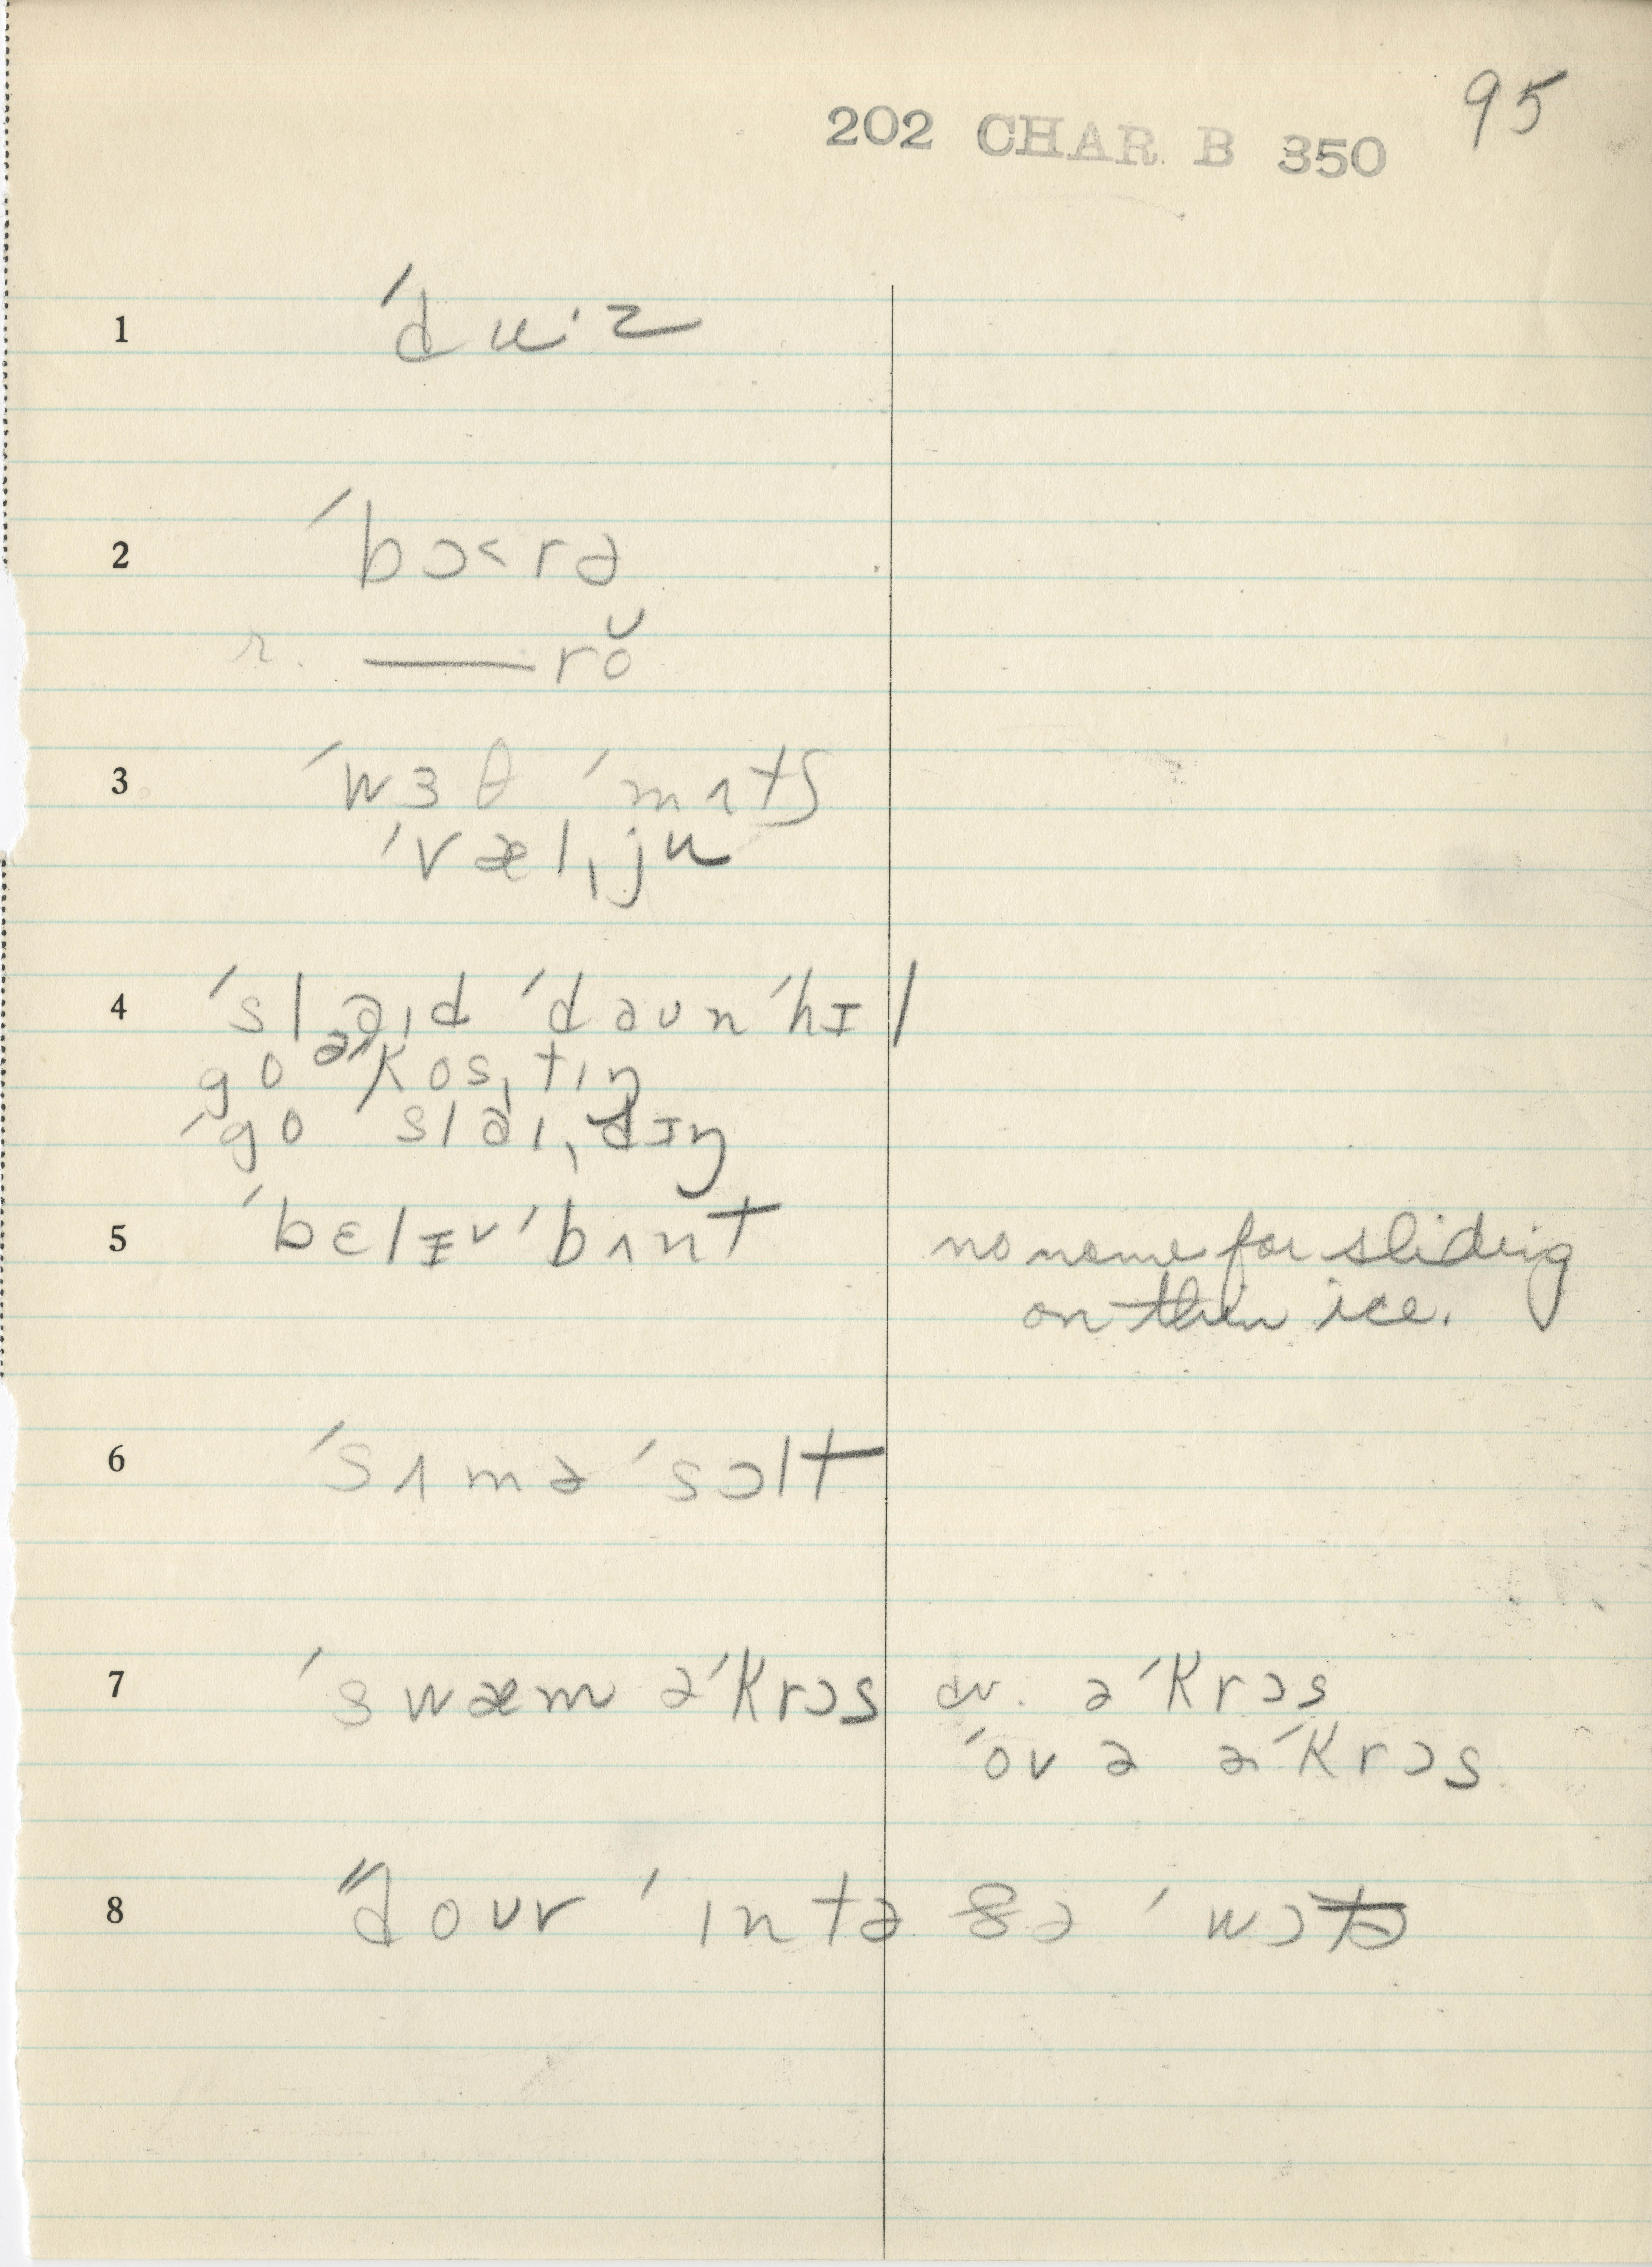 95
202 CHAR B 350
1 ˈdʉ·z
2 ˈbɔ˂rə
r. ——rŏ
3 ˈwɜθ ˈmʌtʃ
ˈvælˌjʉ
4 ˈsləɪd ˈdəʊn ˈhɪl
go əˈkosˌtɪŋ
ˈgo sləɪˌdɪŋ
5 ˈbɛlɪvˈbʌnt no name for sliding
on thin ice.
6 ˈsʌməˈsɔlt
7 ˈswæm əˈkrɔs cv. əˈkrɔs
ˈovə əˈkrɔs
8 ˈˈdoʊv ˈɪntə ðə ˈwɔtə